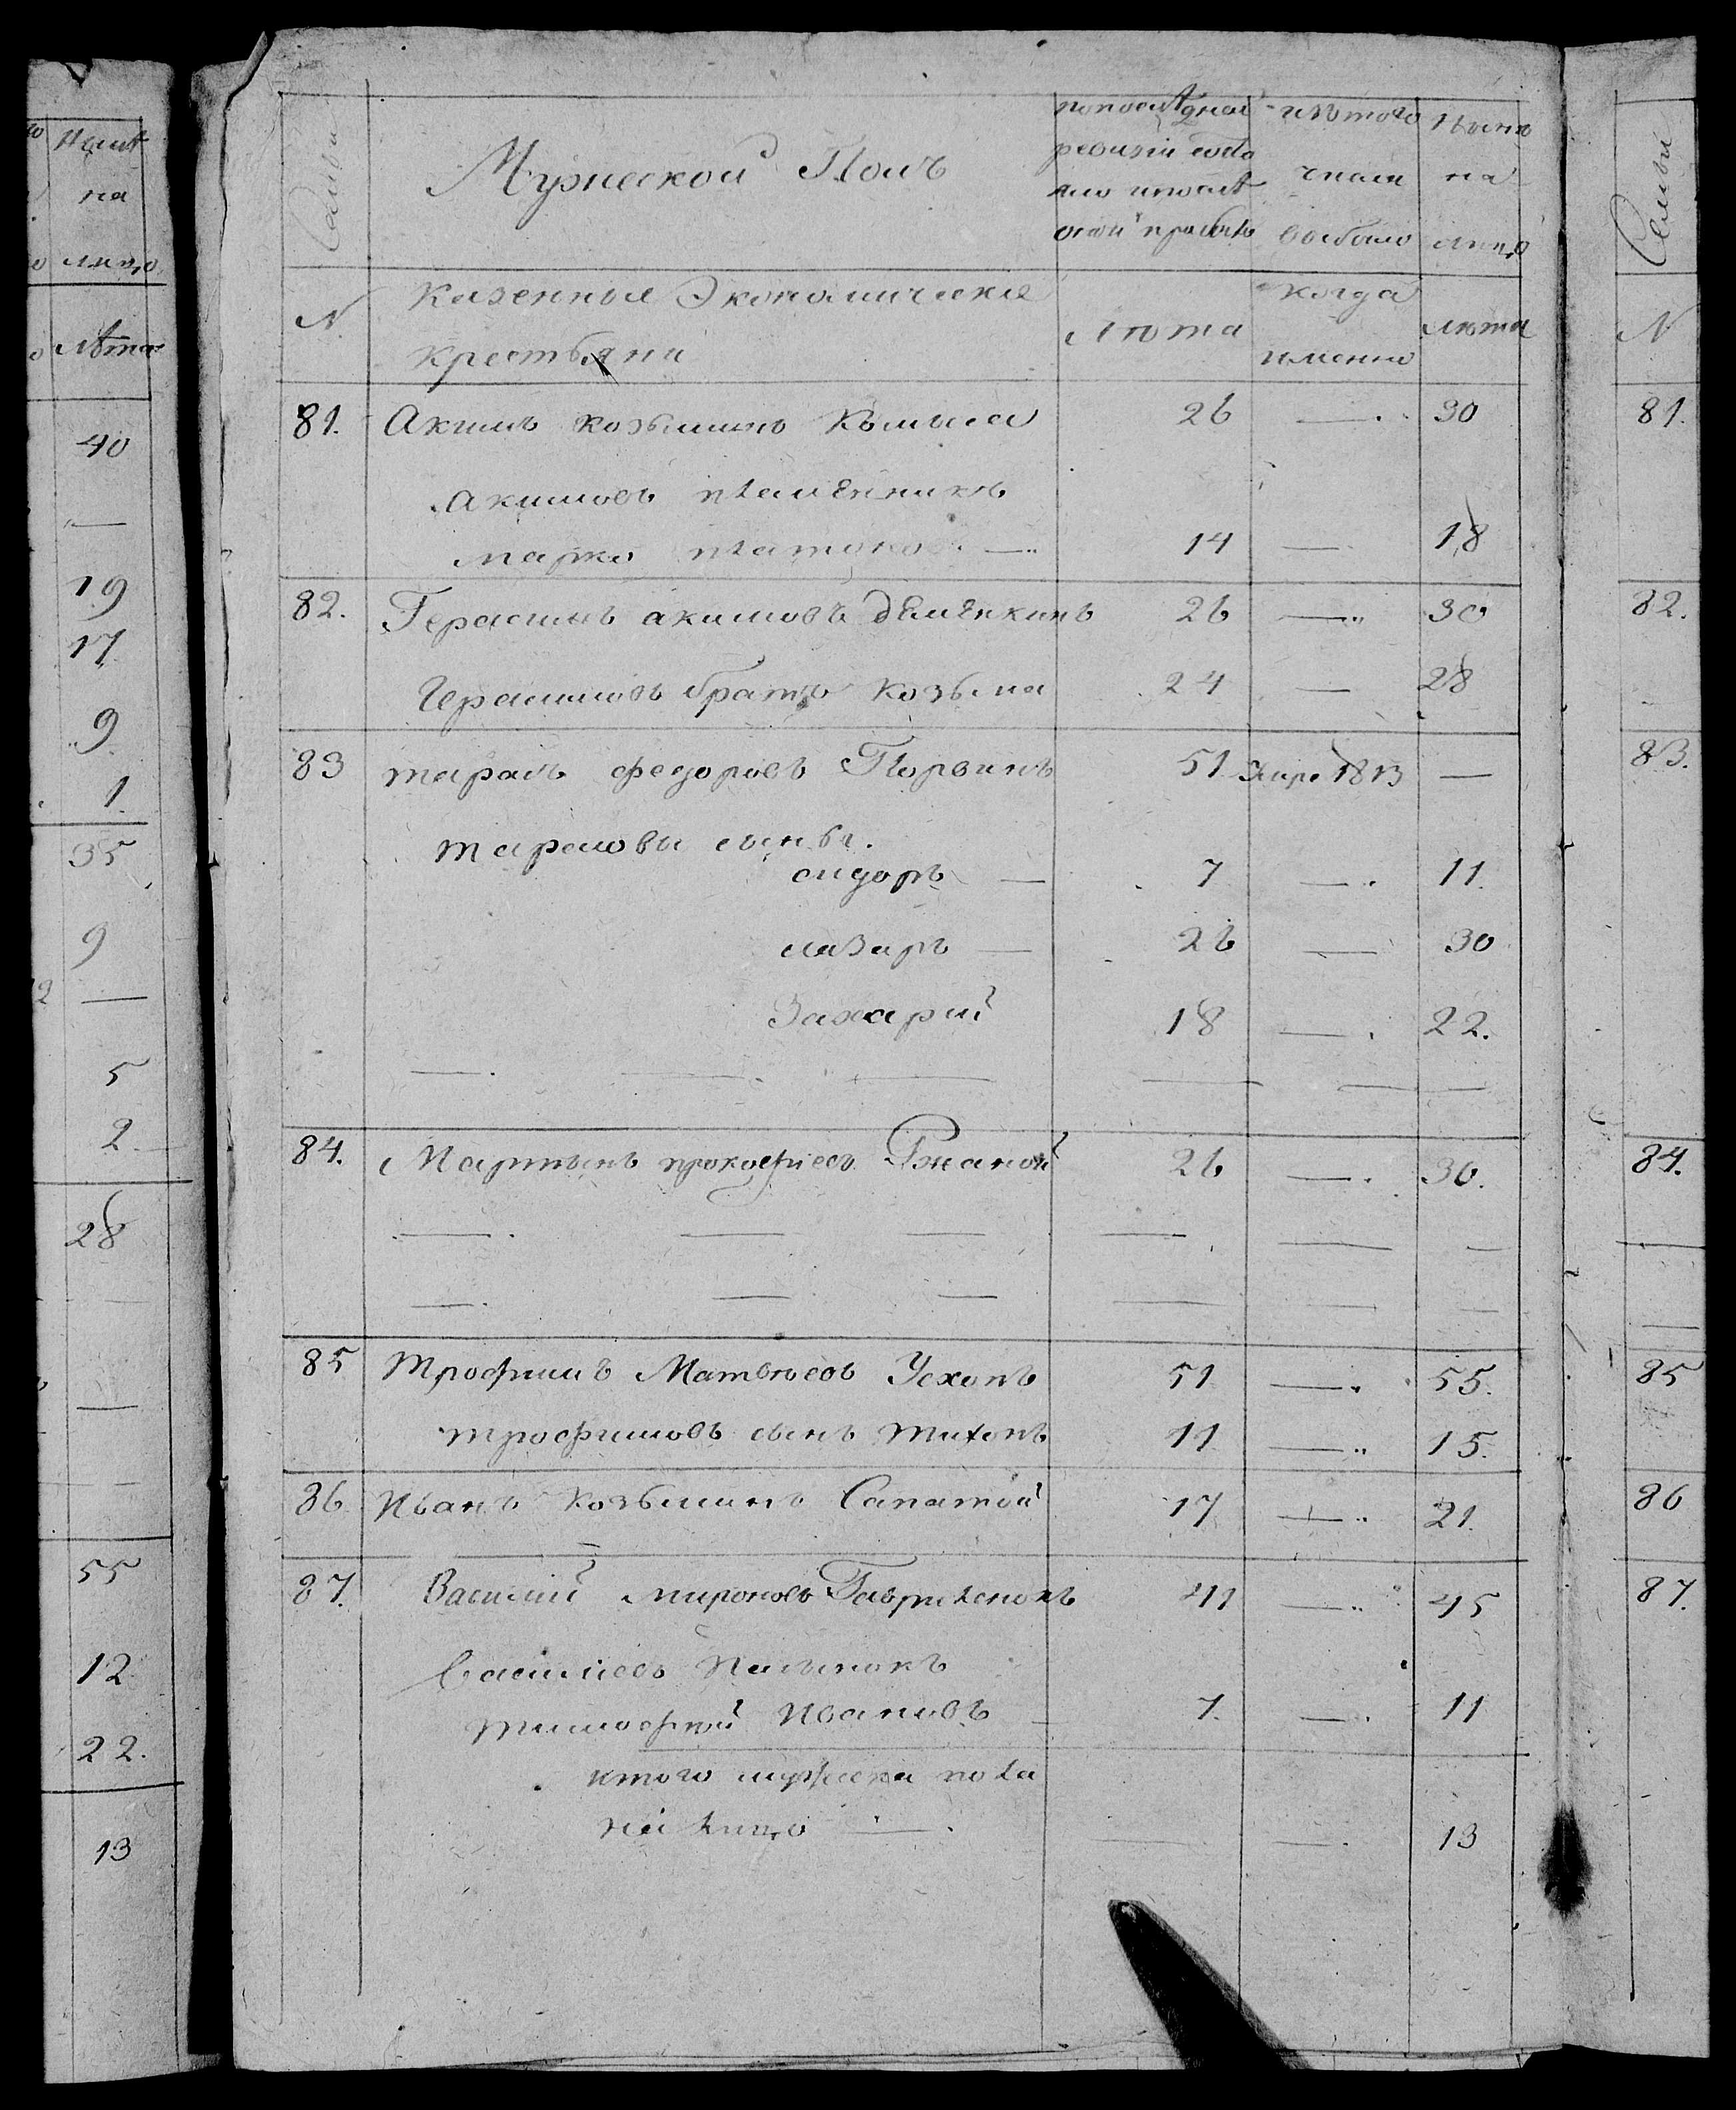 Нынѣ
на
лицо
лѣта
40
—
19
17
9
1
35
9
—
5
2
28
—
55
12
22.
13
Семьи
Мужеской Полъ
попослѣдней
ревизіи состо
яло и послѣ
оной прибыло
изътого
числа
выбыло
Нынѣ
на
лицо
N
Казенные Экономические
крестьяни
лѣта
когда
имянно
лѣта
81. Акимъ козьминъ 26 — 30
Акимовъ племянникъ
марко платоновъ — 14 — 18
82. Герасимъ акимовъ деменкинъ 26 — 30
Герасимовъ братъ козьма 24 — 28
83 тарасъ федоровъ 51 Умре 1813 —
тарасовы сыны.
сидоръ — 7 — 11.
лазарь — 26 — 30
Захарий 18 — 22.
— — — — — —
84. Мартынъ прокофиевъ Ржаной 26 — 30.
— — — — — —
— — — — — —
85 Трофимъ Матвѣевъ 51 — 55.
трофимовъ сынъ тихонъ 11 — 15.
86. Иванъ козьминъ Сапатой 17 — 21.
87. Василий мироновъ 41 — 45
Василиевъ
тимофѣй Ивановъ — 7. — 11
итого мужеска пола
на лицо — — — 13
Семьи
N
81.
82.
83.
84.
85
86
87.